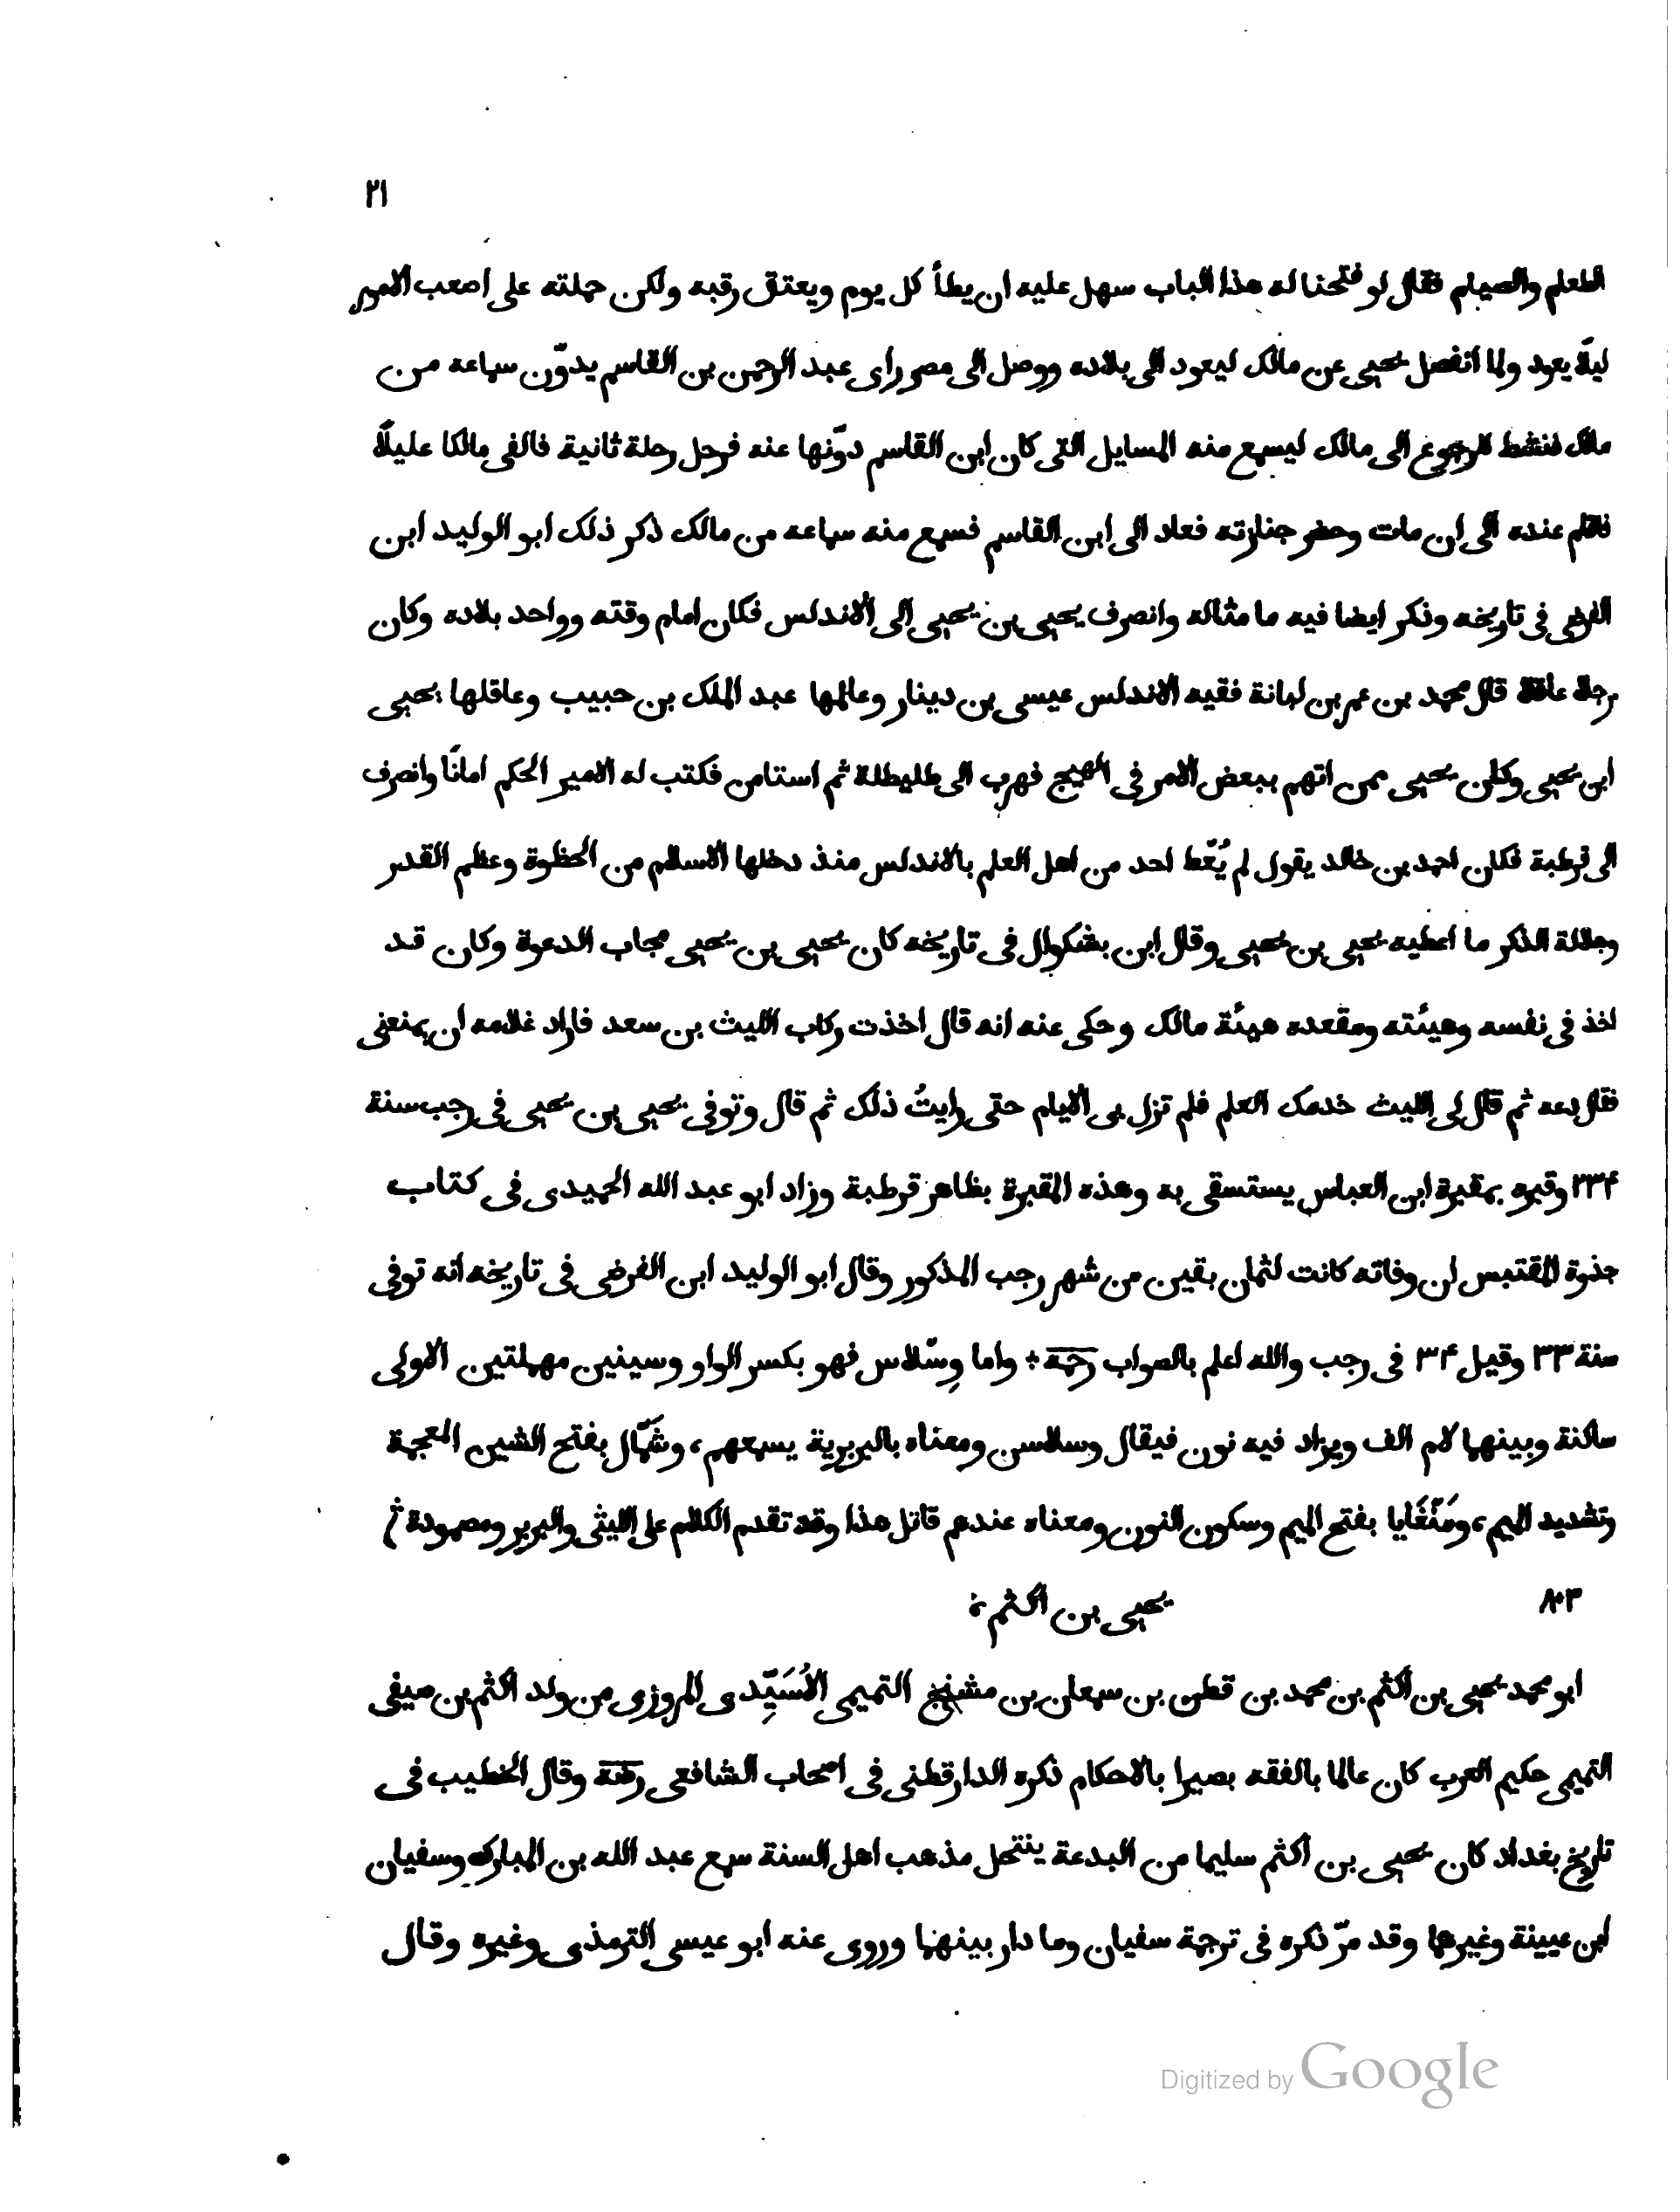 ٢١
الطعام والصيام فقال لو فتحنا له هذا الباب سهل عليه ان يطأ كل يوم ويعتق رقبه ولكن حملته على اصعب الامور
ليلّا يعود ولما انفصل يحيى عن مالك ليعود الى بلاده ووصل الى مصر راى عبد الرحمن بن القاسم يدوّن سماعه من
مالك فنشط للرجوع الى مالك ليسمع منه المسايل التى كان ابن القاسم دوّنها عنه فرحل رحلة ثانية فالفى مالكا عليلًا
فاقام عنده الى ان مات وحضر جنازته فعاد الى ابن القاسم فسمع منه سماعه من مالك ذكر ذلك ابو الوليد ابن
الفرضى فى تاريخه وذكر ايضا فيه ما مثاله وانصرف يحيى بن يحيى الى الاندلس فكان امام وقته وواحد بلاده وكان
رجلا عاقلا قال محمد بن عمر بن لبانة فقيه الاندلس عيسى بن دينار وعالمها عبد الملك بن حبيب وعاقلها يحيى
ابن يحيى وكان يحيى ممن اتهم ببعض الامر فى الهيج فهرب الى طليطلة ثم استامن فكتب له الامير الحكم امانًا وانصرف
الى قرطبة فكان احمد بن خالد يقول لم يُعّط احد من اهل العلم بالاندلس منذ دخلها الاسلام من الحظوة وعظم القدر
وجلالة الذكر ما اعطيه يحيى بن يحيى وقال ابن بشكوال فى تاريخه كان يحيى بن يحيى مجاب الدعوة وكان قد
اخذ فى نفسه وهيئته ومقعده هيئة مالك وحكى عنه انه قال اخذت ركاب الليث بن سعد فاراد غلامه ان يمنعنى
فقال دعه ثم قال لى الليث خدمك العلم فلم تزل بى الايام حتى رايتُ ذلك ثم قال وتوفى يحيى بن يحيى فى رجب سنة
٢٣۴ وقبره بمقبرة ابن العباس يستسقى به وهذه المقبرة بظاهر قرطبة وزاد ابو عبد الله الحميدى فى كتاب
جذوة المقتبس ان وفاته كانت لثمان بقين من شهر رجب المذكور وقال ابو الوليد ابن الفرضى فى تاريخه انه توفى
سنة ٣٣ وقيل ٣۴ فى رجب والله اعلم بالصواب رحمه ÷ واما وِسّلاس فهو بكسر الواو وسينين مهملتين الاولى
ساكنة وبينهما لام الف ويزاد فيه نون فيقال وسلاسن ومعناه بالبربرية يسمعهم، وشَمّال بفتح الشين المعجمة
وتشديد الميم، ومَنّغَايا بفتح الميم وسكون النون ومعناه عندهم قاتل هذا وقد تقدم الكلام على الليثى والبربر ومصمودة
٨٠٣ يحيى بن اكثم
ابو محمد يحيى بن اكثم بن محمد بن قطن بن سمعان بن مشنج التميمى الاُسَيِّدى المروزى من ولد اكثم بن صيفى
التميمى حكيم العرب كان عالما بالفقه بصيرا بالاحكام ذكره الدارقطنى فى اصحاب الشافعى رضه وقال الخطيب فى
تاريخ بغداد كان يحيى بن اكثم سليما من البدعة ينتحل مذهب اهل السنة سمع عبد الله بن المبارك وسفيان
ابن عيينة وغيرهما وقد مرّ ذكره فى ترجمة سفيان وما دار بينهما وروى عنه ابو عيسى الترمذى وغيره وقال
Digitized by Google